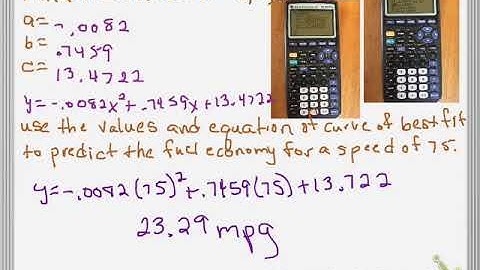 a= -.0082
b= .7459
c= 13.4722
y= -.0082x² + .7459x + 13.4722
use the values and equation of curve of best fit
to predict the fuel economy for a speed of 75.
y= -.0082(75)² + .7459(75) + 13.722
23.29 mpg